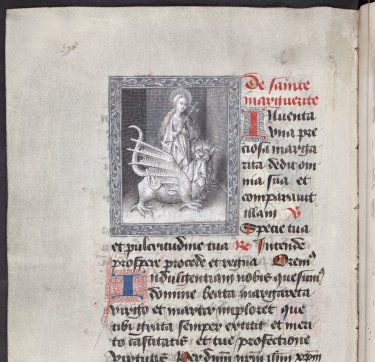 De sainte
marguerite
Inuenta
vna pre
ciosa marga
rita dedit om
nia sua et
comparauit
illam V
Specie tua
et pulcritudine tua Re Intende
prospere procede et regna Orem9
Indulgentiam nobis quesum9
domine beata margareta
virgo et martir imploret que
tibi grata semper extitit et meri
to castitatis et tue professione
virtutis Per dnm nrm ihm xpm